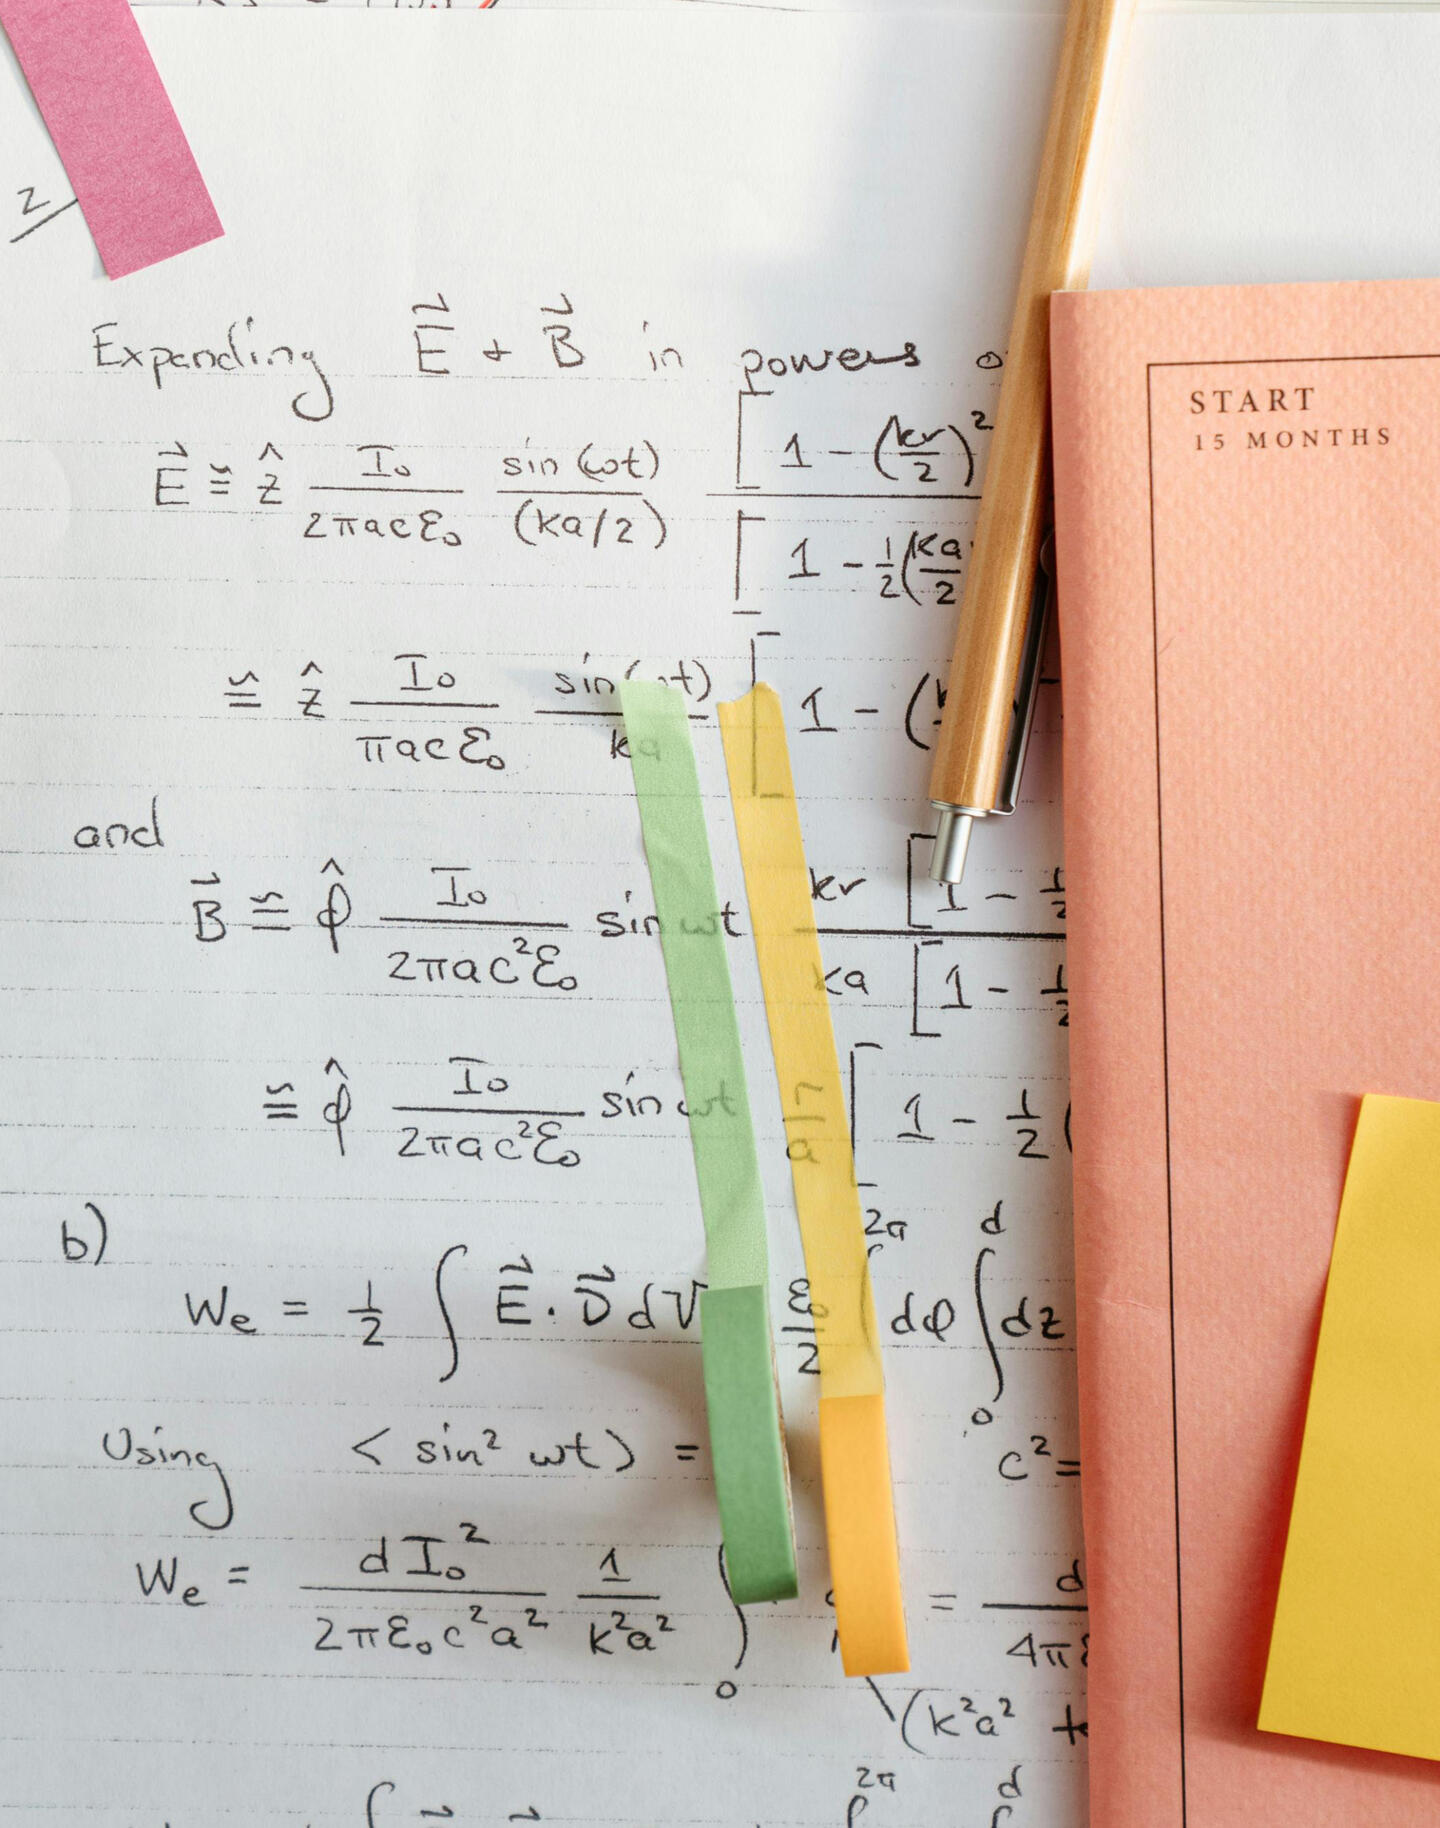 2
Expanding E⃗ + B⃗ in powers
E⃗ ≅ ẑ I₀/(2πacε₀) sin(ωt)/(ka/2) [1 - (kr/2)²
[1 - 1/2(ka/2
≅ ẑ I₀/(πacε₀) sin(ωt)/ka [1 - (
and
B⃗ ≅ φ̂ I₀/(2πac²ε₀) sin ωt kr [1 - 1/2
ka [1 - 1/2
≅ φ̂ I₀/(2πac²ε₀) sin ωt r/a [1 - 1/2 (
b)
We = 1/2 ∫ E⃗ · D⃗ dV ε₀/2 ∫ 2π dφ ∫₀ᵈ dz
Using < sin² ωt) = c² =
We = dI₀²/(2πε₀c²a²) 1/(k²a²) ∫₀ = d/4πε
(k²a²
2π d
START
15 MONTHS